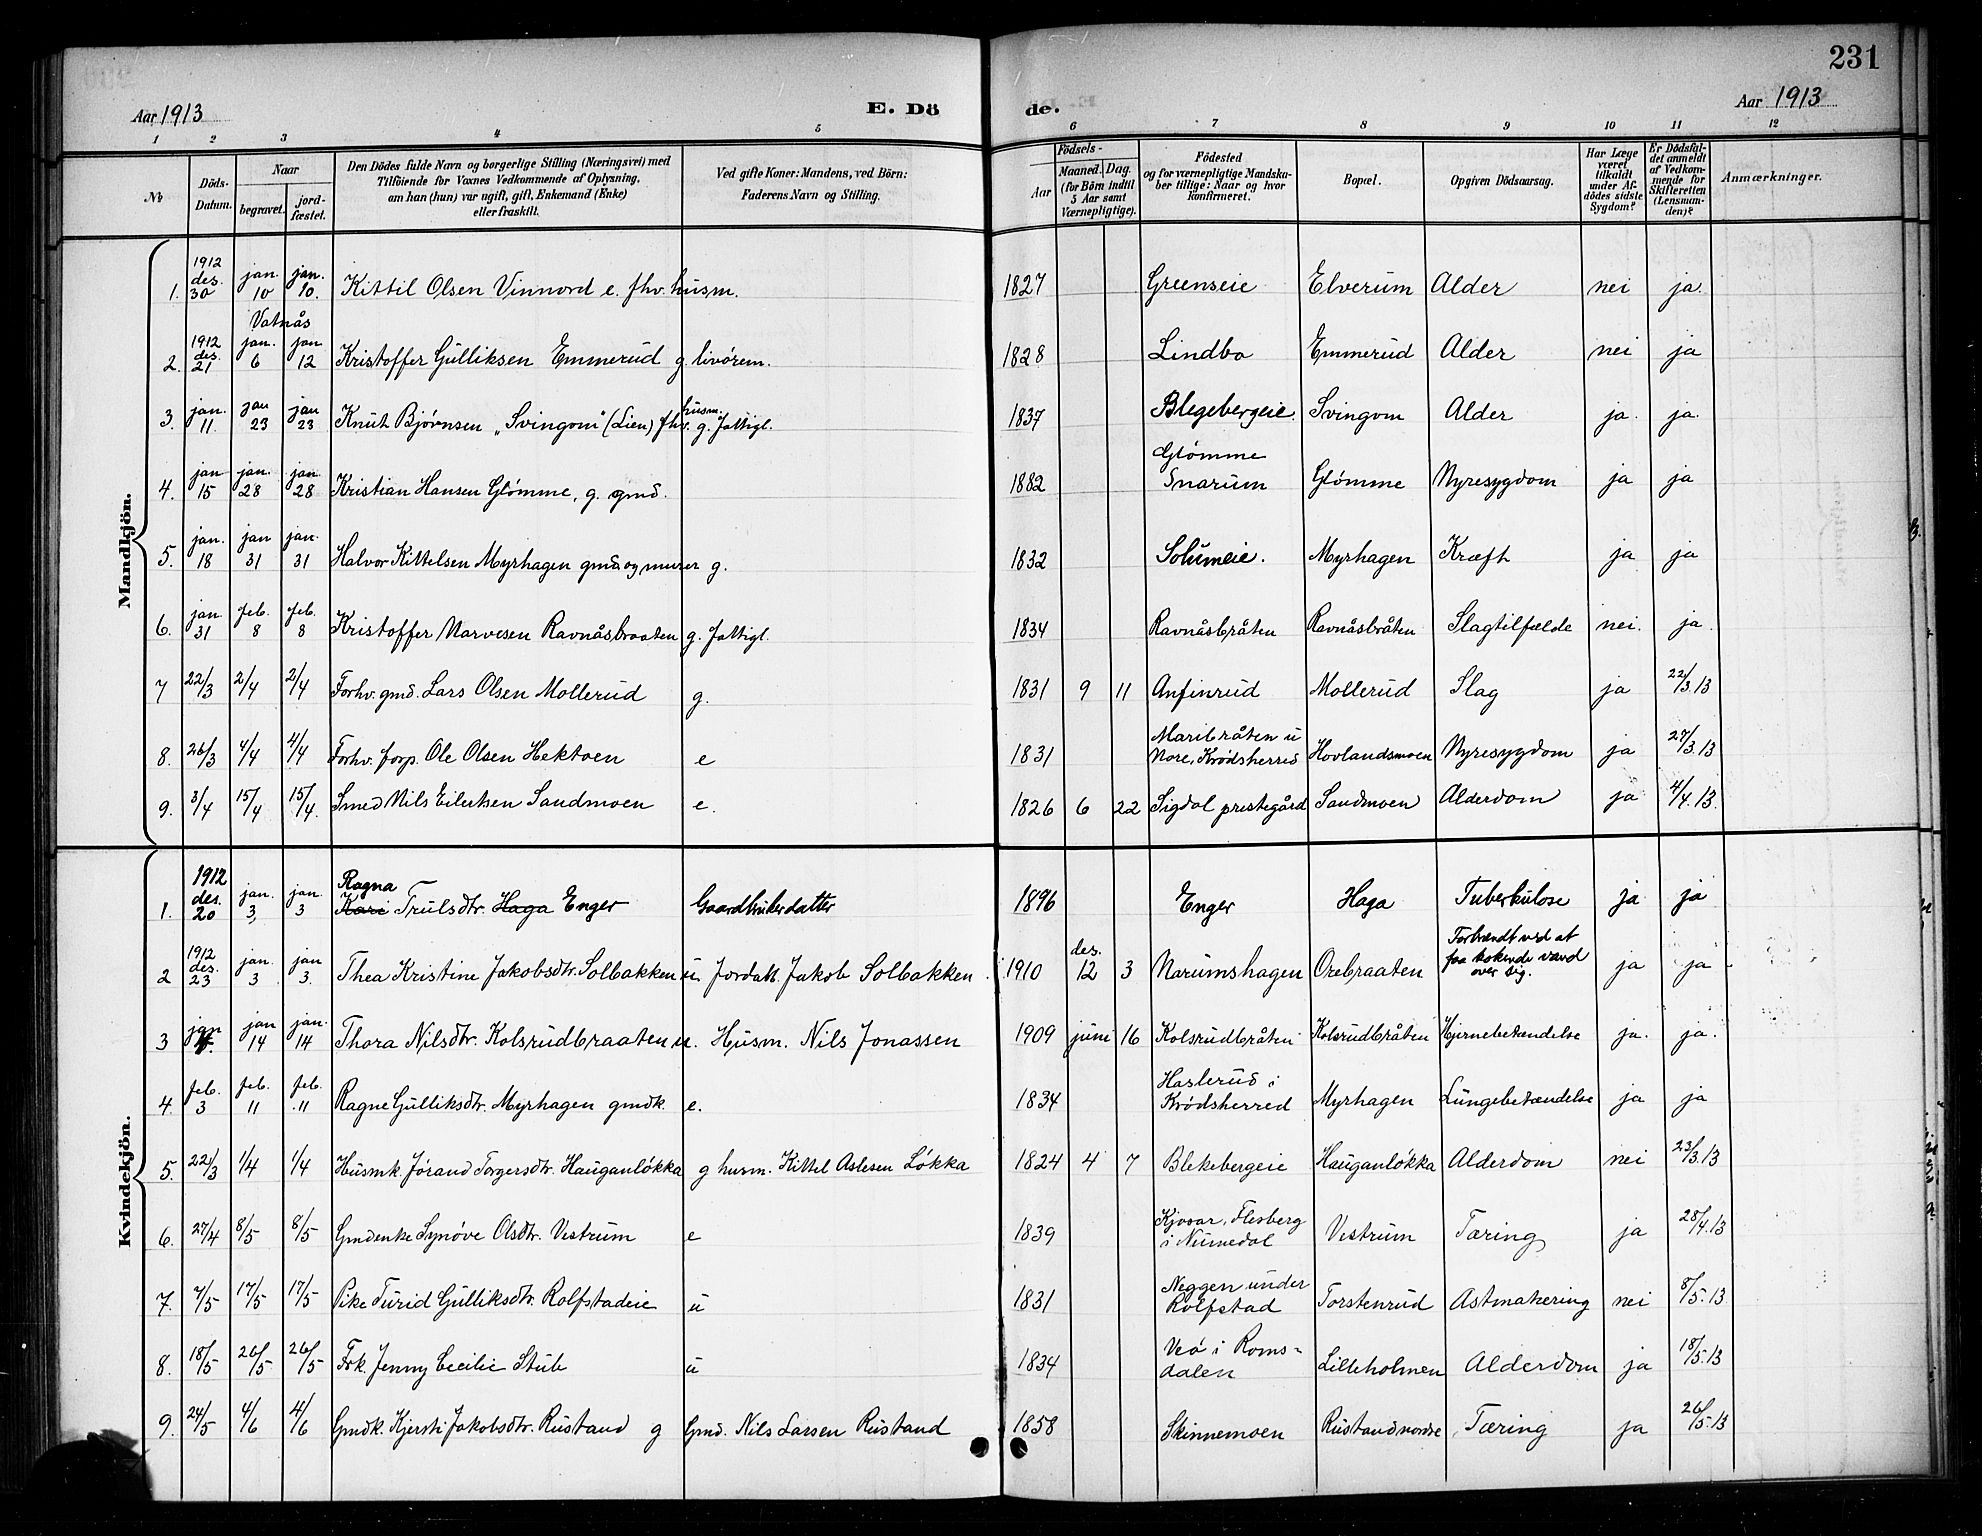 231
Aar 1913 E. Dö de. Aar 1913
1 2 3 4 5 6 7 8 9 10 11 12
№ Döds-Datum. Naar begravet. jord-fæstet. Den Dödes fulde Navn og borgerlige Stilling (Næringsvei) med Tilföiende for Voxnes Vedkommende af Oplysning, om han (hun) var ugift, gift, Enkemand (Enke) eller fraskilt. Ved gifte Koner: Mandens, ved Börn: Faderens Navn og Stilling. Födsels- Aar Maaned. Dag. (for Börn indtil 5 Aar samt Værnepligtige). Födested og for værnepligtige Mandskaber tillige: Naar og hvor konfirmeret. Bopæl. Opgiven Dödsaarsag. Har Læge været tilkaldt under Afdödes sidste Sygdom? Er Dödsfaldet anmeldt af Vedkommende for Skifteretten (Lensmanden)? Anmærkninger.
Mandkjön.
1. 1912 des. 30 jan. 10 jan. 10. Kittil Olsen Vinnord e. fhv. husm. 1827 Greenseie Elverum Alder nei ja.
2. 1912 des. 21 Vatnås jan. 6 jan 12 Kristoffer Gulliksen Emmerud g. livörem. 1828 Lindbo Emmerud Alder nei ja
3. jan. 11. jan 23 jan 23 Knut Bjørnsen „Svingom" (Lien) fhv. husm. g. fattigl. 1837 Blegebergeie. Svingom Alder ja. ja.
4. jan 15 jan. 28 jan 28 Kristian Hansen Glømme, g. gmd. 1882 Glømme Snarum Glømme Nyresygdom ja ja
5. jan. 18 jan 31 jan. 31 Halvor Kittelsen Myrhagen gmd og murer g. 1832 Solumeie. Myrhagen Kræft ja ja
6. jan. 31 feb. 8 feb. 8 Kristoffer Narvesen Ravnåsbraaten g. fattigl. 1834 Ravnåsbråten Ravnåsbråten Slagtilfælde nei. ja.
7 22/3 2/4 2/4 Forhv. gmd. Lars Olsen Mollerud g. 1831 9 11 Anfinrud Mollerud Slag ja 22/3.13
8. 26/3 4/4 4/4 Forhv. forp. Ole Olsen Hektoen e 1831 Maribråten u Nore, Krødsherred Hovlandsmoen Nyresygdom ja 27/3 13
9. 3/4 15/4 15/4. Smed Nils Eilertsen Sandmoen e. 1826 6 22 Sigdal prestegård Sandmoen Alderdom ja 4/4.13.
Kvindekjön.
1. 1912 des. 20 jan. 3 jan 3 Ragna Kari Trulsdtr. Haga Enger Gaardbrukerdatter 1896 Enger Haga Tuberkulose ja ja
2 1912 des. 23 jan. 3 jan 3. Thea Kristine Jakobsdtr. Solbakken u. Jordarb. Jakob Solbakken 1910 des. 12 3 Narumshagen Orebraaten Forbrændt ved at faa kokende vand over sig. ja ja
3 jan jan 14 jan. 14 Thora Nilsdtr. Kolsrudbraaten u. Husm. Nils Jonassen 1909 juni 16 Kolsrudbråten Kolsrudbråten Hjernebetændelse ja. ja.
4. feb. 3 feb. 11 feb. 11 Ragne Gulliksdtr. Myrhagen gmdk. e. 1834 Haslerud i Krødsherred Myrhagen Lungebetændelse ja ja
5. 22/3 1/4 1/4 Husmk. Jørand Torgersdtr. Hauganløkka g husm. Kittel Aslesen Løkka 1824 4 7 Blekebergeie Hauganløkka Alderdom nei 23/3.13
6. 27/4 8/5 8/5 Gmdenke Synøve Olsdtr. Vestrum e 1839 Flesberg i Numedal Vestrum Tæring ja 28/4.13
7. 7/5 17/5 17/5 Pike Turid Gulliksdtr. Rolfstadeie u 1831 Neggen under Rolfstad Torstenrud Astmakering nei 8/5.13.
8. 18/5 26/5 26/5 Frk. Jenny Cecilie Stub u 1834 Veø i Romsdalen Lilleholmen Alderdom ja 18/5.13
9. 24/5 4/6 4/6 Gmdk. Kjersti Jakobsdtr. Rustand g Gmd. Nils Larsen Rustand 1858 Skinnemoen Rustand nordre Tæring ja 26/5.13